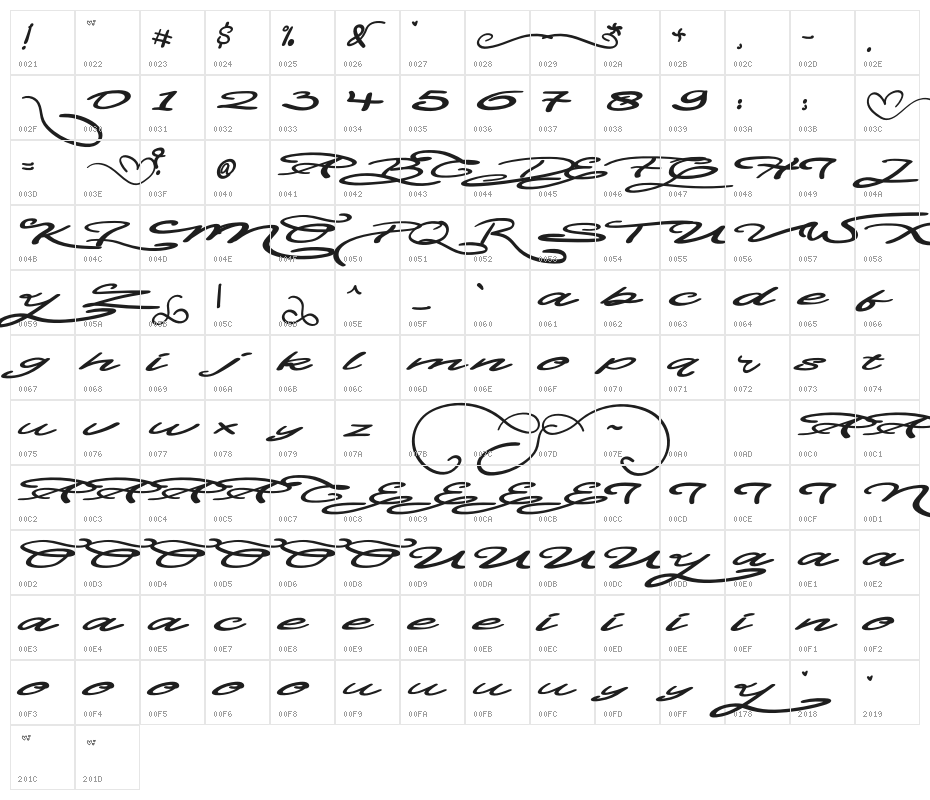 ! " # $ % & ' ( ) * + , - .
0021 0022 0023 0024 0025 0026 0027 0028 0029 002A 002B 002C 002D 002E
/ 0 1 2 3 4 5 6 7 8 9 : ; <
002F 0030 0031 0032 0033 0034 0035 0036 0037 0038 0039 003A 003B 003C
= > ? @ A B C D E F G H I J
003D 003E 003F 0040 0041 0042 0043 0044 0045 0046 0047 0048 0049 004A
K L M N O P Q R S T U V W X
004B 004C 004D 004E 004F 0050 0051 0052 0053 0054 0055 0056 0057 0058
Y Z [ \ ] ^ _ ` a b c d e f
0059 005A 005B 005C 005D 005E 005F 0060 0061 0062 0063 0064 0065 0066
g h i j k l m n o p q r s t
0067 0068 0069 006A 006B 006C 006D 006E 006F 0070 0071 0072 0073 0074
u v w x y z { | } ~ A A
0075 0076 0077 0078 0079 007A 007B 007C 007D 007E 00A0 00AD 00C0 00C1
A A A A C E E E E I I I I N
00C2 00C3 00C4 00C5 00C7 00C8 00C9 00CA 00CB 00CC 00CD 00CE 00CF 00D1
O O O O O O U U U U Y a a a
00D2 00D3 00D4 00D5 00D6 00D8 00D9 00DA 00DB 00DC 00DD 00E0 00E1 00E2
a a a c e e e e i i i i n o
00E3 00E4 00E5 00E7 00E8 00E9 00EA 00EB 00EC 00ED 00EE 00EF 00F1 00F2
o o o o o u u u u y y Y
00F3 00F4 00F5 00F6 00F8 00F9 00FA 00FB 00FC 00FD 00FF 0178 2018 2019
201C 201D